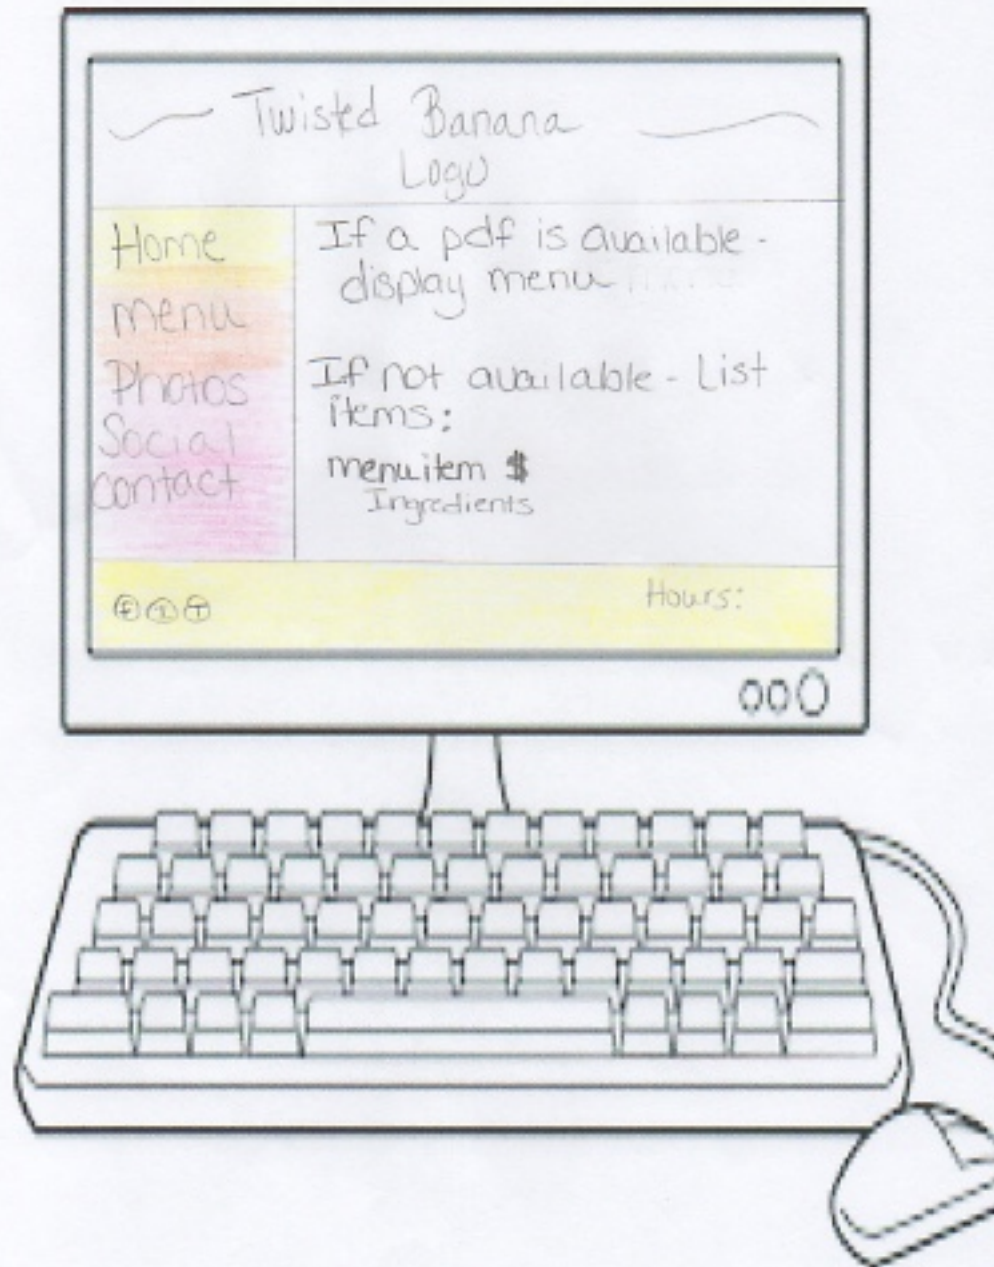 Twisted Banana
Logo
Home
menu
Photos
Social
contact
If a pdf is available -
display menu
If not available - List
items:
menu item $
Ingredients
Hours: